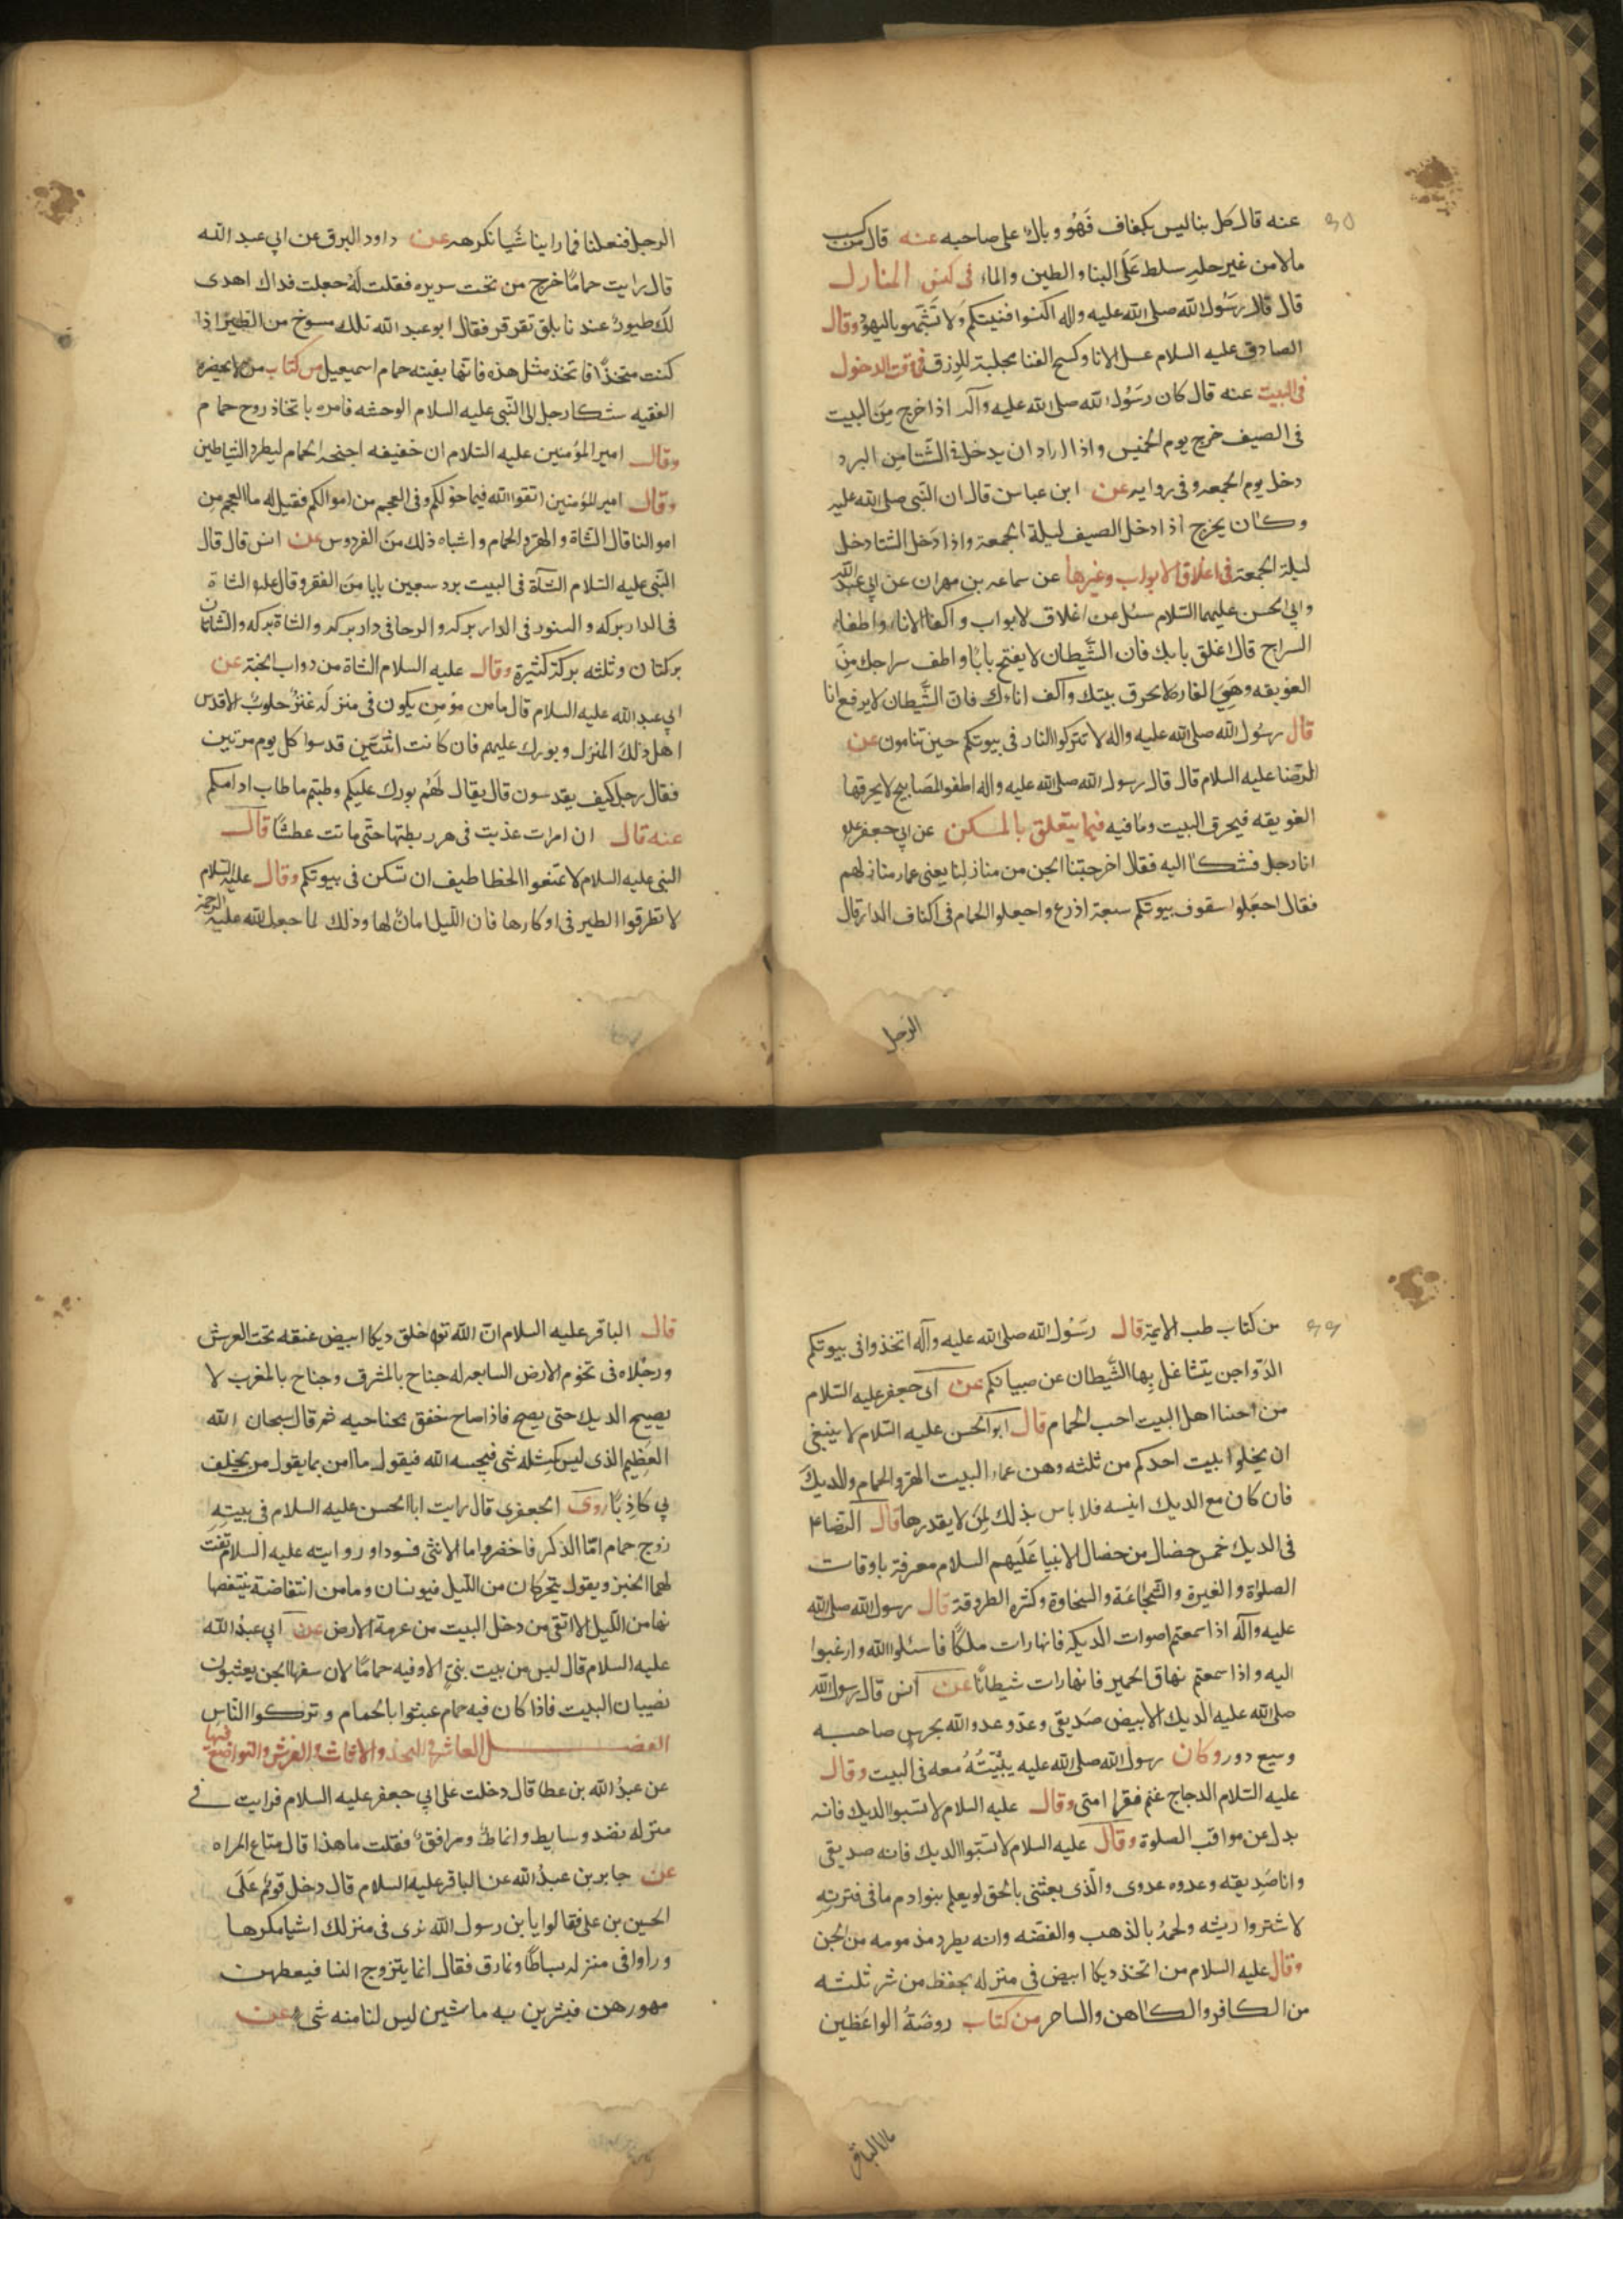 عنه قال كل بناليس بكفاف فهو وبال على صاحبه عنه قال من كسب
مالا من غير حله سلط على البنا والطين والماء فى كنس المنازل
قال قال رسول الله صلى الله عليه واله اكنسوا فنيتكم ولا تشبهو باليهود وقال
الصادق عليه السلام غسل الانا وكسح الفنا مجلبة للرزق فى وقت الدخول
فى البيت عنه قال كان رسول الله صلى الله عليه وآله اذا خرج من البيت
فى الصيف خرج يوم الخميس واذا اراد ان يدخل فى الشتا من البرد
دخل يوم الجمعه وفى روايه عن ابن عباس قال ان النبى صلى الله عليه
وكان يخرج اذا دخل الصيف ليلة الجمعة واذا دخل الشتا دخل
ليلة الجمعة فى اغلاق الابواب وغيرها عن سماعه بن مهران عن ابى عبد الله
وابى الحسن عليهما السلام سئل عن اغلاق لابواب واكفا الاناء واطفاء
السراج قال اغلق بابك فان الشيطان لا يفتح بابا واطف سراجك من
الفويقه وهى الفاره لا تحرق بيتك واكف اناءك فان الشيطان لا يرفع انا
قال رسول الله صلى الله عليه واله لا تتركوا النار فى بيوتكم حين تنامون عن
الرضا عليه السلام قال قال رسول الله صلى الله عليه واله اطفو المصابيح لا يحرقها
الفويقه فيحرق البيت وما فيه فيما يتعلق بالمسكن عن ابى جعفر علم
انا رجل فشكا اليه فقال اخرجتنا الجن من منازلنا يعنى عمار منازلهم
فقال اجعلوا سقوف بيوتكم سبعة اذرع واجعلو الحمام فى اكناف الدار قال
الرجل
الرجل ففعلنا فما راينا شيا نكرهه عن داود البرقى عن ابى عبد الله
قال رايت حماما خرج من تحت سريره فقلت له جعلت فداك اهدى
لك طيور عندنا بلق تقرقر فقال ابو عبد الله تلك مسوخ من الطير اذا
كنت متخذا فاتخذ مثل هذه فانها بقيته حمام اسمعيل من كتاب من لا يحضره
الفقيه شكا رجل الى النبى عليه السلام الوحشه فامره باتخاذ زوج حمام
وقال امير المؤمنين عليه السلام ان خفيفه اجنحه الحمام ليطرد الشياطين
وقال امير المؤمنين اتقوا الله فيما خولكم وفى العجم من اموالكم فقيل له ما العجم من
اموالنا قال الشاة والهرد الحمام واشباه ذلك من الفردوس عن انس قال قال
النبى عليه السلام الشاة فى البيت برد سعبين بابا من الفقر وقال علم الشاة
فى الدار بركه والسنور فى الدار بركه والرحا فى دار بركه والشاة بركه والشاتان
بركتان وثلثه بركة كثيرة وقال عليه السلام الشاة من دواب الجنة عن
ابى عبد الله عليه السلام قال ما من مؤمن يكون فى منزله عنز حلوب الاقدس
اهل ذلك المنزل وبورك عليهم فان كانت اثنتين قدسوا كل يوم مرتين
فقال رجل كيف يقدسون قال يقال لهم بورك عليكم وطبتم ما طاب ادامكم
عنه قال ان امرات عذبت فى هرر بطتها حتى ماتت عطشا قال
النبى عليه السلام لا تمنعوا الخطاطيف ان تسكن فى بيوتكم وقال عليه السلام
لا تطرقوا الطير فى اوكارها فان الليل امان لها وذلك لما جعل الله عليه الرحمة
من كتاب طب الايمة قال رسول الله صلى الله عليه وآله اتخذوا فى بيوتكم
الدواجن يتشاغل بها الشيطان عن صبيانكم عن ابى جعفر عليه السلام
من احبنا اهل البيت احب الحمام قال ابو الحسن عليه السلام لا ينبغى
ان يخلوا بيت احدكم من ثلثه وهن عمار البيت الهر والحمام والديك
فان كان مع الديك انيسه فلا باس بذلك لمن لا يقدرها قال الرضا علم
فى الديك خمس خصال من خصال الانبيا عليهم السلام معرفة باوقات
الصلواة والغيرة والشجاعة والسخاوة وكثره الطروقة قال رسول الله صلى الله
عليه وآله اذا سمعتم اصوات الديكه فانها رات ملكا فاسئلوا الله وارغبوا
اليه واذا سمعتم نهاق الحمير فانها رات شيطانا عن انس قال رسول الله
صلى الله عليه الديك الابيض صديقى وعدو عدو الله يحرس صاحبه
وسبع دور وكان رسول الله صلى الله عليه يبيته معه فى البيت وقال
عليه السلام الدجاج غنم فقرا امتى وقال عليه السلام لا تسبوا الديك فانه
يدل عن مواقب الصلوة وقال عليه السلام لا تسبوا الديك فانه صديقى
وانا صديقه وعدوه عدوى والذى بعثنى بالحق لو يعلم بنوادم ما فى قربته
لا شتروا ريشه ولحمه بالذهب والفضه وانه يطرد مذمومه من الجن
وقال عليه السلام من اتخذ ديكا ابيض فى منزله يحفظ من شر ثلثه
من الكافر والكاهن والساحر من كتاب روضة الواعظين
قال الباقر
قال الباقر عليه السلام ان الله تعالى خلق ديكا ابيض عنقه تحت العرش
ورجلاه فى تخوم الارض السابعه له جناح بالمشرق وجناح بالمغرب لا
يصيح الديك حتى يصيح فاذا صاح خفق بجناحيه ثم قال سبحان الله
العظيم الذى ليس كمثله شى فيجيبه الله فيقول ما امن بما يقول من يحلف
بى كاذبا روى الجعفرى قال رايت ابا الحسن عليه السلام فى بيته
زوج حمام اما الذكر فاخضر واما الانثى فسوداو رو ايته عليه السلام تفت
لهما الخبز ويقول يتحركان من الليل فيونسان وما من انتفاضة ينتفضا
نها من الليل الا اتقى من دخل البيت من عرمة الارض عن ابى عبد الله
عليه السلام قال ليس من بيت بنى الا وفيه حماما لان سفها الجن يعبثون
بصبيان البيت فاذا كان فيه حمام عبثوا بالحمام وتركوا الناس
الفصل العاشر فى النجد والاثاث والفرش والتواضع فيها
عن عبد الله بن عطا قال دخلت على ابى جعفر عليه السلام فرايت فى
منزله نضد وسايط وانماط ومرافق فقلت ما هذا قال متاع المراه
عن جابر بن عبد الله عن الباقر عليه السلام قال دخل قوم على
الحسين بن على فقالوا يا بن رسول الله نرى فى منزلك اشيا مكرها
وراوا فى منزله بساطا ونمارق فقال انما يتزوج النسا فيعطهن
مهورهن فيشترين به ما شين ليس لنا منه شى عن